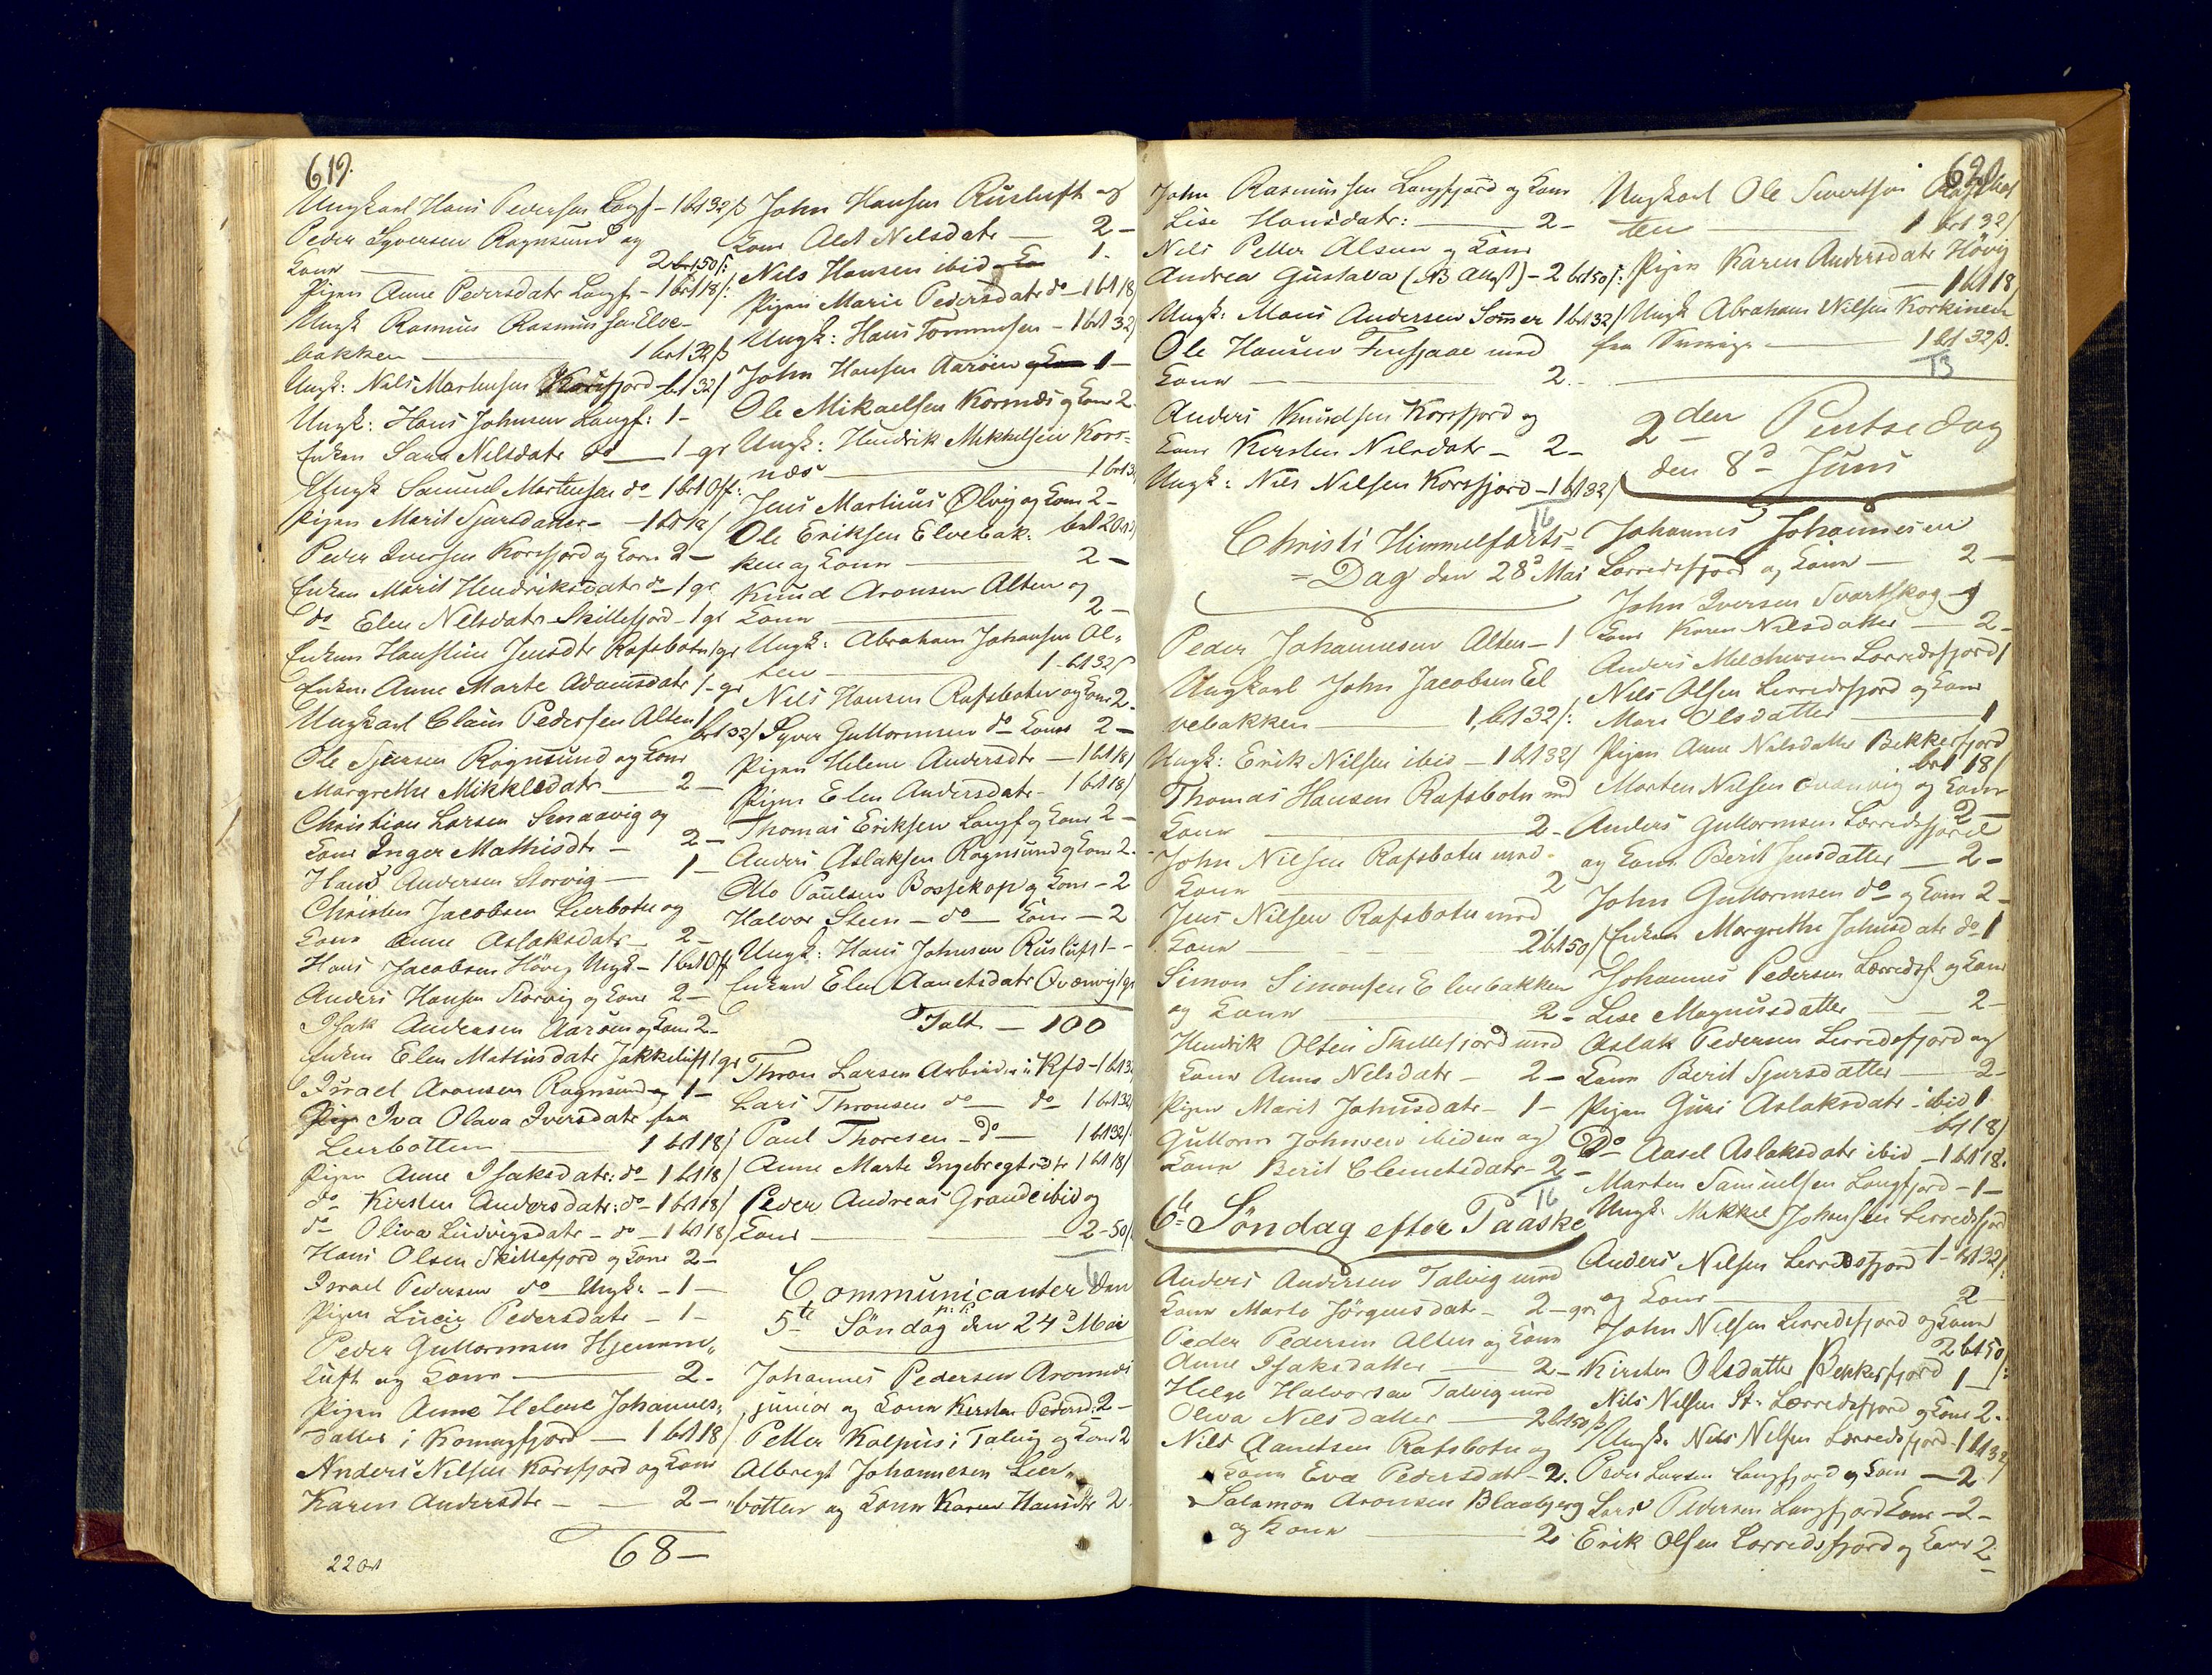 619.
Ungkarl Hans Pedersen Langf - 1 brt 32 ß
Peder Syversen Rognsund og
Kone 2 brt 50 ß:
Pigen Anne Pedersdatr Langf - 1 brt 18 ß:
Ungk Rasmus Rasmussen Elve-
bakken 1 brt 32 ß
Ungk: Nils Mortensen Korsfjord - brt 32 ß
Ungk: Hans Johnsen Langf: 1 -
Enken Sara Nilsdatr do 1 - gr
Ungk Samuel Mortensen do - 1 brt Off:
Pigen Marit Sjursdatter - 1 brt 18 ß
Peder Iversen Korsfjord og Kone 2 -
Enken Marit Hendriksdatr do - 1 gr
do Elen Nilsdatr Skillefjord - 1 gr
Enken Hanstine Jensdtr Rafsbotn 1 gr
Enken Anne Marte Adamsdatr 1 - gr
Ungkarl Claus Pedersen Alten 1
brt 32 ß
Ole Sjursen Rognsund og Kone
Margrethe Mikkelsdatr 2 -
Christian Larsen Smaavig og
Kone Inger Mathisdtr - 2 -
Hans Andersen Storvig - 1 -
Christen Jacobsen Leerbotn og
Kone Anne Aslaksdatr - 2 -
Hans Jacobsen Høvig Ungk - 1 brt Off
Anders Hansen Storvig og Kone 2 -
Isak Andersen Aarøen og Kone 2 -
Enken Elen Mathisdatr Jakkeluft 1 gr
Israel Aronsen Rognsund og 1 -
Pigen Iva Olava Iversdatr fra
Leerbotten 1 brt 18 ß
Pigen Anne Isaksdatr: do 1 brt 18 ß
do Kirsten Andersdatr: do - 1 brt 18 ß
do Oliva Ludvigsdatr - do - 1 brt 18 ß
Hans Olsen Skillefjord og Kone 2 -
Israel Pedersen do Ungk: - 1 -
Pigen Lucie Pedersdatr - 1 -
Peder Guttormsen Hjemme„
luft og Kone 2 -
Pigen Anne Helene Johannes„
datter i Komagfjord - 1 brt 18 ß
Anders Nilsen Korsfjord og Kone
Karen Andersdtr - 2 -
68 -
22 Ort
John Hansen Rusluft og
Kone Alet Nilsdatr - 2 -
Nils Hansen ibid 1.
Pigen Marie Pedersdatr do - 1 brt 18 ß
Ungk: Hans Tommesen - 1 brt 32 ß
John Hansen Aarøen og Kone 1 -
Ole Mikaelsen Korsnæs og Kone 2
Ungk: Hendrik Mikkelsen Kors=
næs 1 brt 3
Jens Martinus Ølvig og Kone 2 -
Ole Eriksen Elvebak:
ken og Kone 2 -
Knud Aronsen Alten og
Kone 2 -
Ungk: Abraham Johansen Al„
ten 1 - brt 32 ß
Nils Hansen Rafsbotn og Kone 2.
Syver Guttormsen do Kone 2 -
Pigen Helene Andersdtr - 1 brt 18 ß
Pigen Elen Andersdatr - 1 brt 18 ß
Thomas Eriksen Langf og Kone 2 -
Anders Aslaksen Rognsund og Kone 2 -
Ole Poulsen Bossekop og Kone - 2
Halvor Steen - do - Kone - 2
Ungk: Hans Johnsen Rusluft 1 -
Enken Elen Aanetsdatr Qvænvig 1 gr
Talt - 100
Thron Larsen Arbeider i Kfd - 1 brt 32
Lars Thronsen do - do - 1 brt 32
Paul Thoresen - do - 1 brt 32 ß
Anne Marte Ingebregtsdtr 1 brt 18 ß
Peder Andreas Grande ibid og
Kone 2 - 50 ß
6
Communicanter den
5te Søndag p: P: den 24d Mai
Johannes Pedersen Aronnæs
junior og Kone Kirsten Pedersd: 2 -
Petter Kolpus i Talvig og Kone 2
Albregt Johannesen Leer„
„botten og Kone Karen Hansdtr 2
620
John Rasmussen Langfjord og Kone
Lise Hansdatr: 2 -
Nils Petter Alsen og Kone
Andrea Gustava - 2 brt 50 ß:
Ungk: Mons Andersen Somer 1 brt 32 ß
Ole Hansen med
Kone 2.
Anders Knudsen Korsfjord og
Kone Kirsten Nilsdatr - 2 -
Ungk: Nils Nilsen Korsfjord - 1 brt 32 ß
16
Christi Himmelfarts=
=Dag den 28d Mai
Peder Johannesen Alten - 1
Ungkarl John Jacobsen El
vebakken 1, brt 32 ß:
Ungk: Erik Nilsen ibid - 1 brt 32 ß
Thomas Hansen Rafsbotn med
Kone 2 -
John Nilsen Rafsbotn med
Kone 2
Jens Nilsen Rafsbotn med
Kone 2 brt 50 ß
Simon Simonsen Elvebakken
og Kone 2 -
Hendrik Olsen Skillefjord med
Kone Anne Nilsdatr - 2 -
Pigen Marit Johnsdatr - 1 -
Guttorm Johnsen ibidem og
Kone Berit Clemetsdatr - 2 -
16
6te Søndag efter Paaske
Anders Andersen Talvig med
Kone Marte Jørgensdatr - 2 - gr
Peder Pedersen Alten og Kone
Anne Isaksdatter 2 -
Helge Halvorsen Talvig med
Oliva Nilsdatter 2 brt 50 ß
Nils Aanetsen Rafsbotn og
Kone Eva Pedersdatr - 2.
Salamon Aronsen Blaabjerg
og Kone 2.
Ungkarl Ole Sivertsen Rafsbot
ten 1 brt 32 ß
Pigen Karen Andersdatr Høvig
1 brt 18
Ungk Abraham Nilsen Korkinen
fra Sverige 1 brt 32 ß.
13
2den Pintse dag
den 8d Juni
Johannes Johannesen
Lerredsfjord og Kone - 2 -
John Iversen Svartskog og
Kone Karen Nilsdatter - 2 -
Anders Melchersen Lerredsfjord 1
Nils Olsen Lerredsfjord og Kone
Mari Olsdatter 1
Pigen Anne Nilsdatter Bekkerfjord
brt 18 ß
Morten Nilsen Qvænvig og Kone
2 -
Anders Guttormsen Lerredsfjord
og Kone Berit Jensdatter - 2 -
John Guttormsen do og Kone 2 -
Enken Margrethe Johnsdatr do 1
Johannes Pedersen Lerredsf og Kone
Lise Magnusdatter 2 -
Aslak Pedersen Lerredsfjord og
Kone Berit Sjursdatter - 2 -
Pigen Guri Aslaksdatr - ibid 1
brt 18 ß
Do Aasel Aslaksdatr ibid - 1 brt 18.
Morten Samuelsen Langfjord - 1 -
Ungk. Mikkel Johansen Lerredsfjord
1 - brt 32 ß:
Anders Nilsen Lerredsfjord
og Kone 2 -
John Nilsen Lerredsfjord og Kone
2 brt 50 ß:
Kirsten Olsdatter Bekkerfjord 1 -
Nils Nilsen St. Lerredsfjord og Kone 2.
Ungk. Nils Nilsen Lerredsfjord - 1 brt 32 ß
Peder Larsen Langfjord og Kone - 2
Lars Pedersen Langfjord Kone - 2 -
Erik Olsen Lerredsfjord og Kone 2.